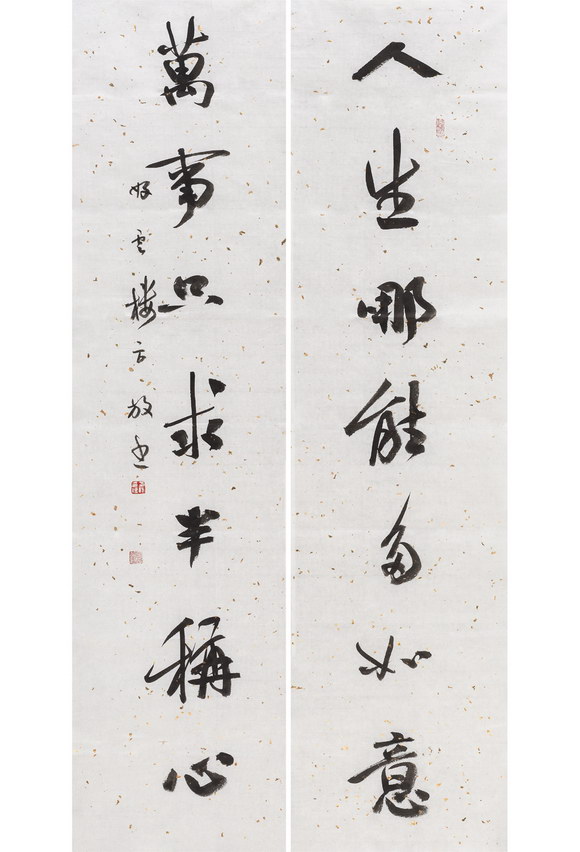 人生哪能多如意
萬事只求半稱心
好雲樓方放書